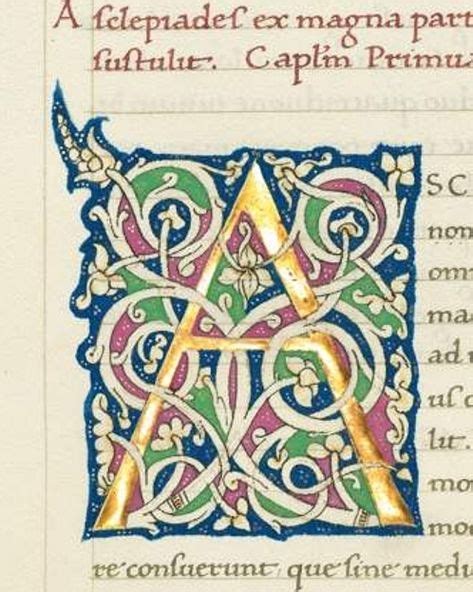 Asclepiadeſ ex magna part
ſuſtulit. Caplm Primu
A SC
non
om
ma
ad
uſ
lit.
mo
mo
re conſuerunt que ſine medi